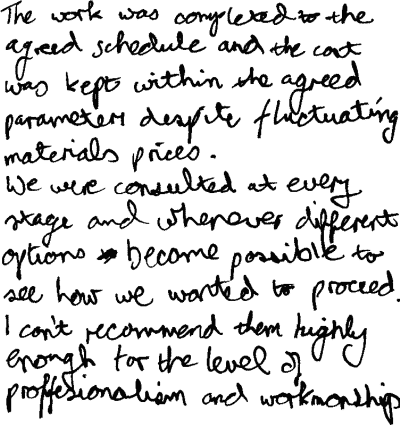 The work was completed to the
agreed schedule and the cost
was kept within the agreed
parameters despite fluctuating
materials prices.
We were consulted at every
stage and whenever different
options became possible to
see how we wanted to proceed.
I can't recommend them highly
enough for the level of
proffesionalism and workmanship